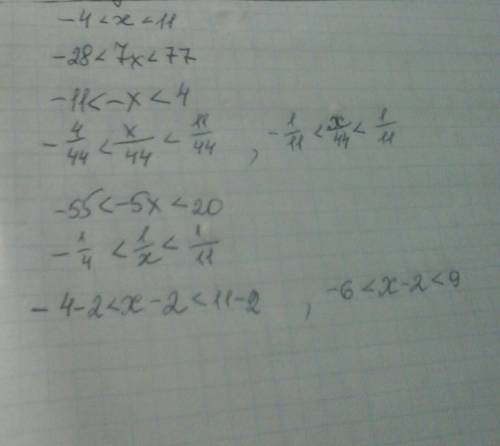 -4 < x < 11
-28 < 7x < 77
-11 < -x < 4
-4/44 < x/44 < 11/44 , -1/11 < x/44 < 1/11
-55 < -5x < 20
-1/4 < 1/x < 1/11
-4-2 < x-2 < 11-2 , -6 < x-2 < 9